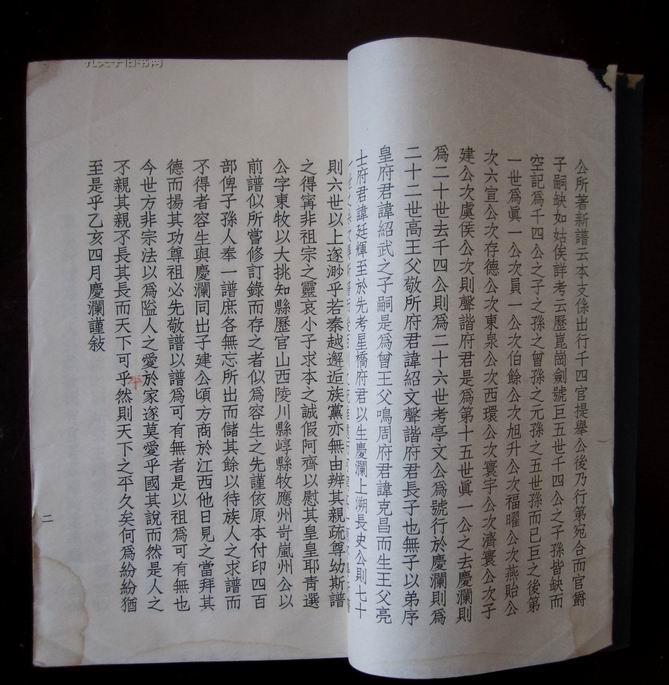 公所著新譜云本支係出行千四官提舉公後乃行第宛合而官爵
子嗣缺如姑俟詳考云歷崑崗劍號巨五世千四公之子孫皆缺而
空記為千四公之子之孫之曾孫之元孫之五世孫而已巨之後第
一世為眞一公次員一公次伯餘公次旭升公次福曜公次燕貽公
次六宣公次存德公次東泉公次西環公次寰宇公次濟寰公次子
建公次虞侯公次則聲諧府君是為第十五世眞一公之去慶瀾則
為二十世去千四公則為二十六世考亭文公為號行於慶瀾則為
二十二世高王父敬所府君諱紹文聲諧府君長子也無子以弟序
皇府君諱紹武之子嗣是為曾王父鳴周府君諱克昌而生王父亮
士府君諱廷輝至於先考星橋府君以生慶瀾上溯長史公則七十
則六世以上遂渺乎若秦越邂逅族黨亦無由辨其親疏尊幼斯譜
之得甯非祖宗之靈哀小子求本之誠假阿齊以慰其皇皇耶靑選
公字東牧以大挑知縣歷官山西陵川縣崞縣牧應州岢嵐州公以
前譜似所嘗修訂錄而存之者似為容生之先謹依原本付印四百
部俾子孫人奉一譜庶各無忘所出而儲其餘以待族人之求譜而
不得者容生與慶瀾同出子建公頃方商於江西他日見之當拜其
德而揚其功尊祖必先敬譜以譜為可有無者是以祖為可有無也
今世方非宗法以為隘人之愛於家遂莫愛乎國其說而然是人之
不親其親不長其長而天下可乎然則天下之平久矣何為紛紛猶
至是乎乙亥四月慶瀾謹敍
平
二
孔夫子旧书网